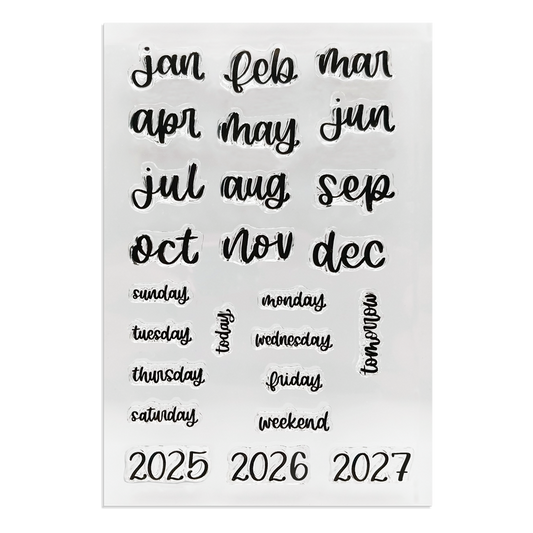 jan feb mar
apr may jun
jul aug sep
oct nov dec
sunday monday
tuesday today wednesday tomorrow
thursday friday
saturday weekend
2025 2026 2027